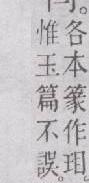 各本篆作珇。
惟玉篇不誤。